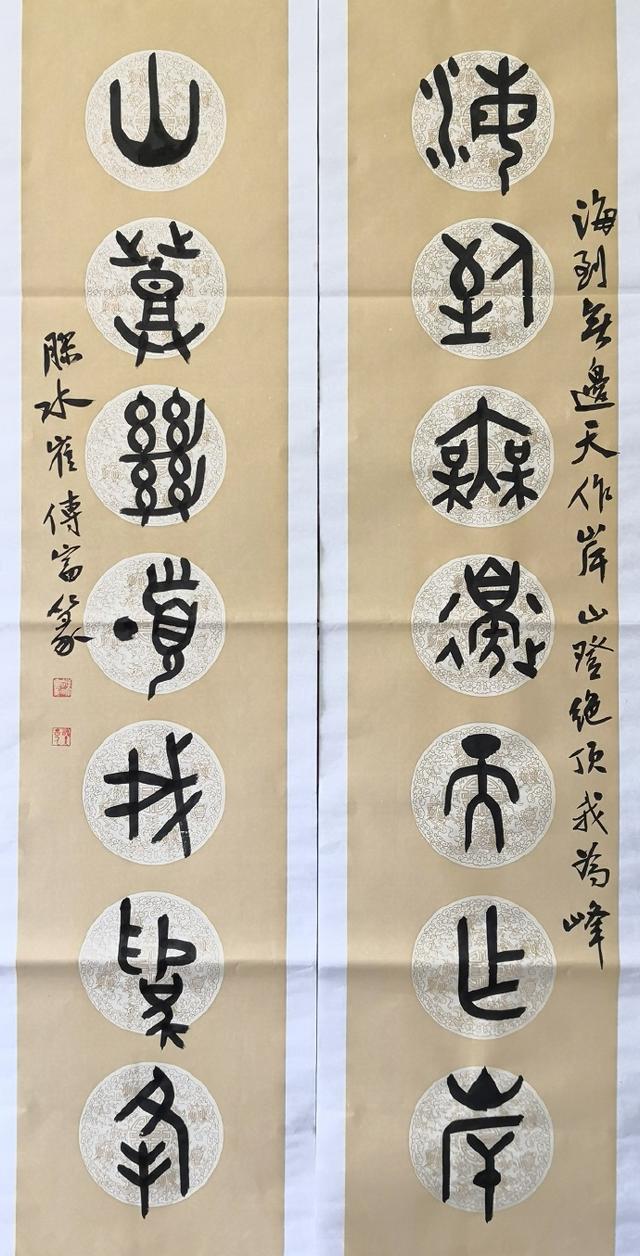 海到無邊天作岸
山登絕頂我為峰
海到無邊天作岸山登絶頂我為峰
膠水崔傳富篆